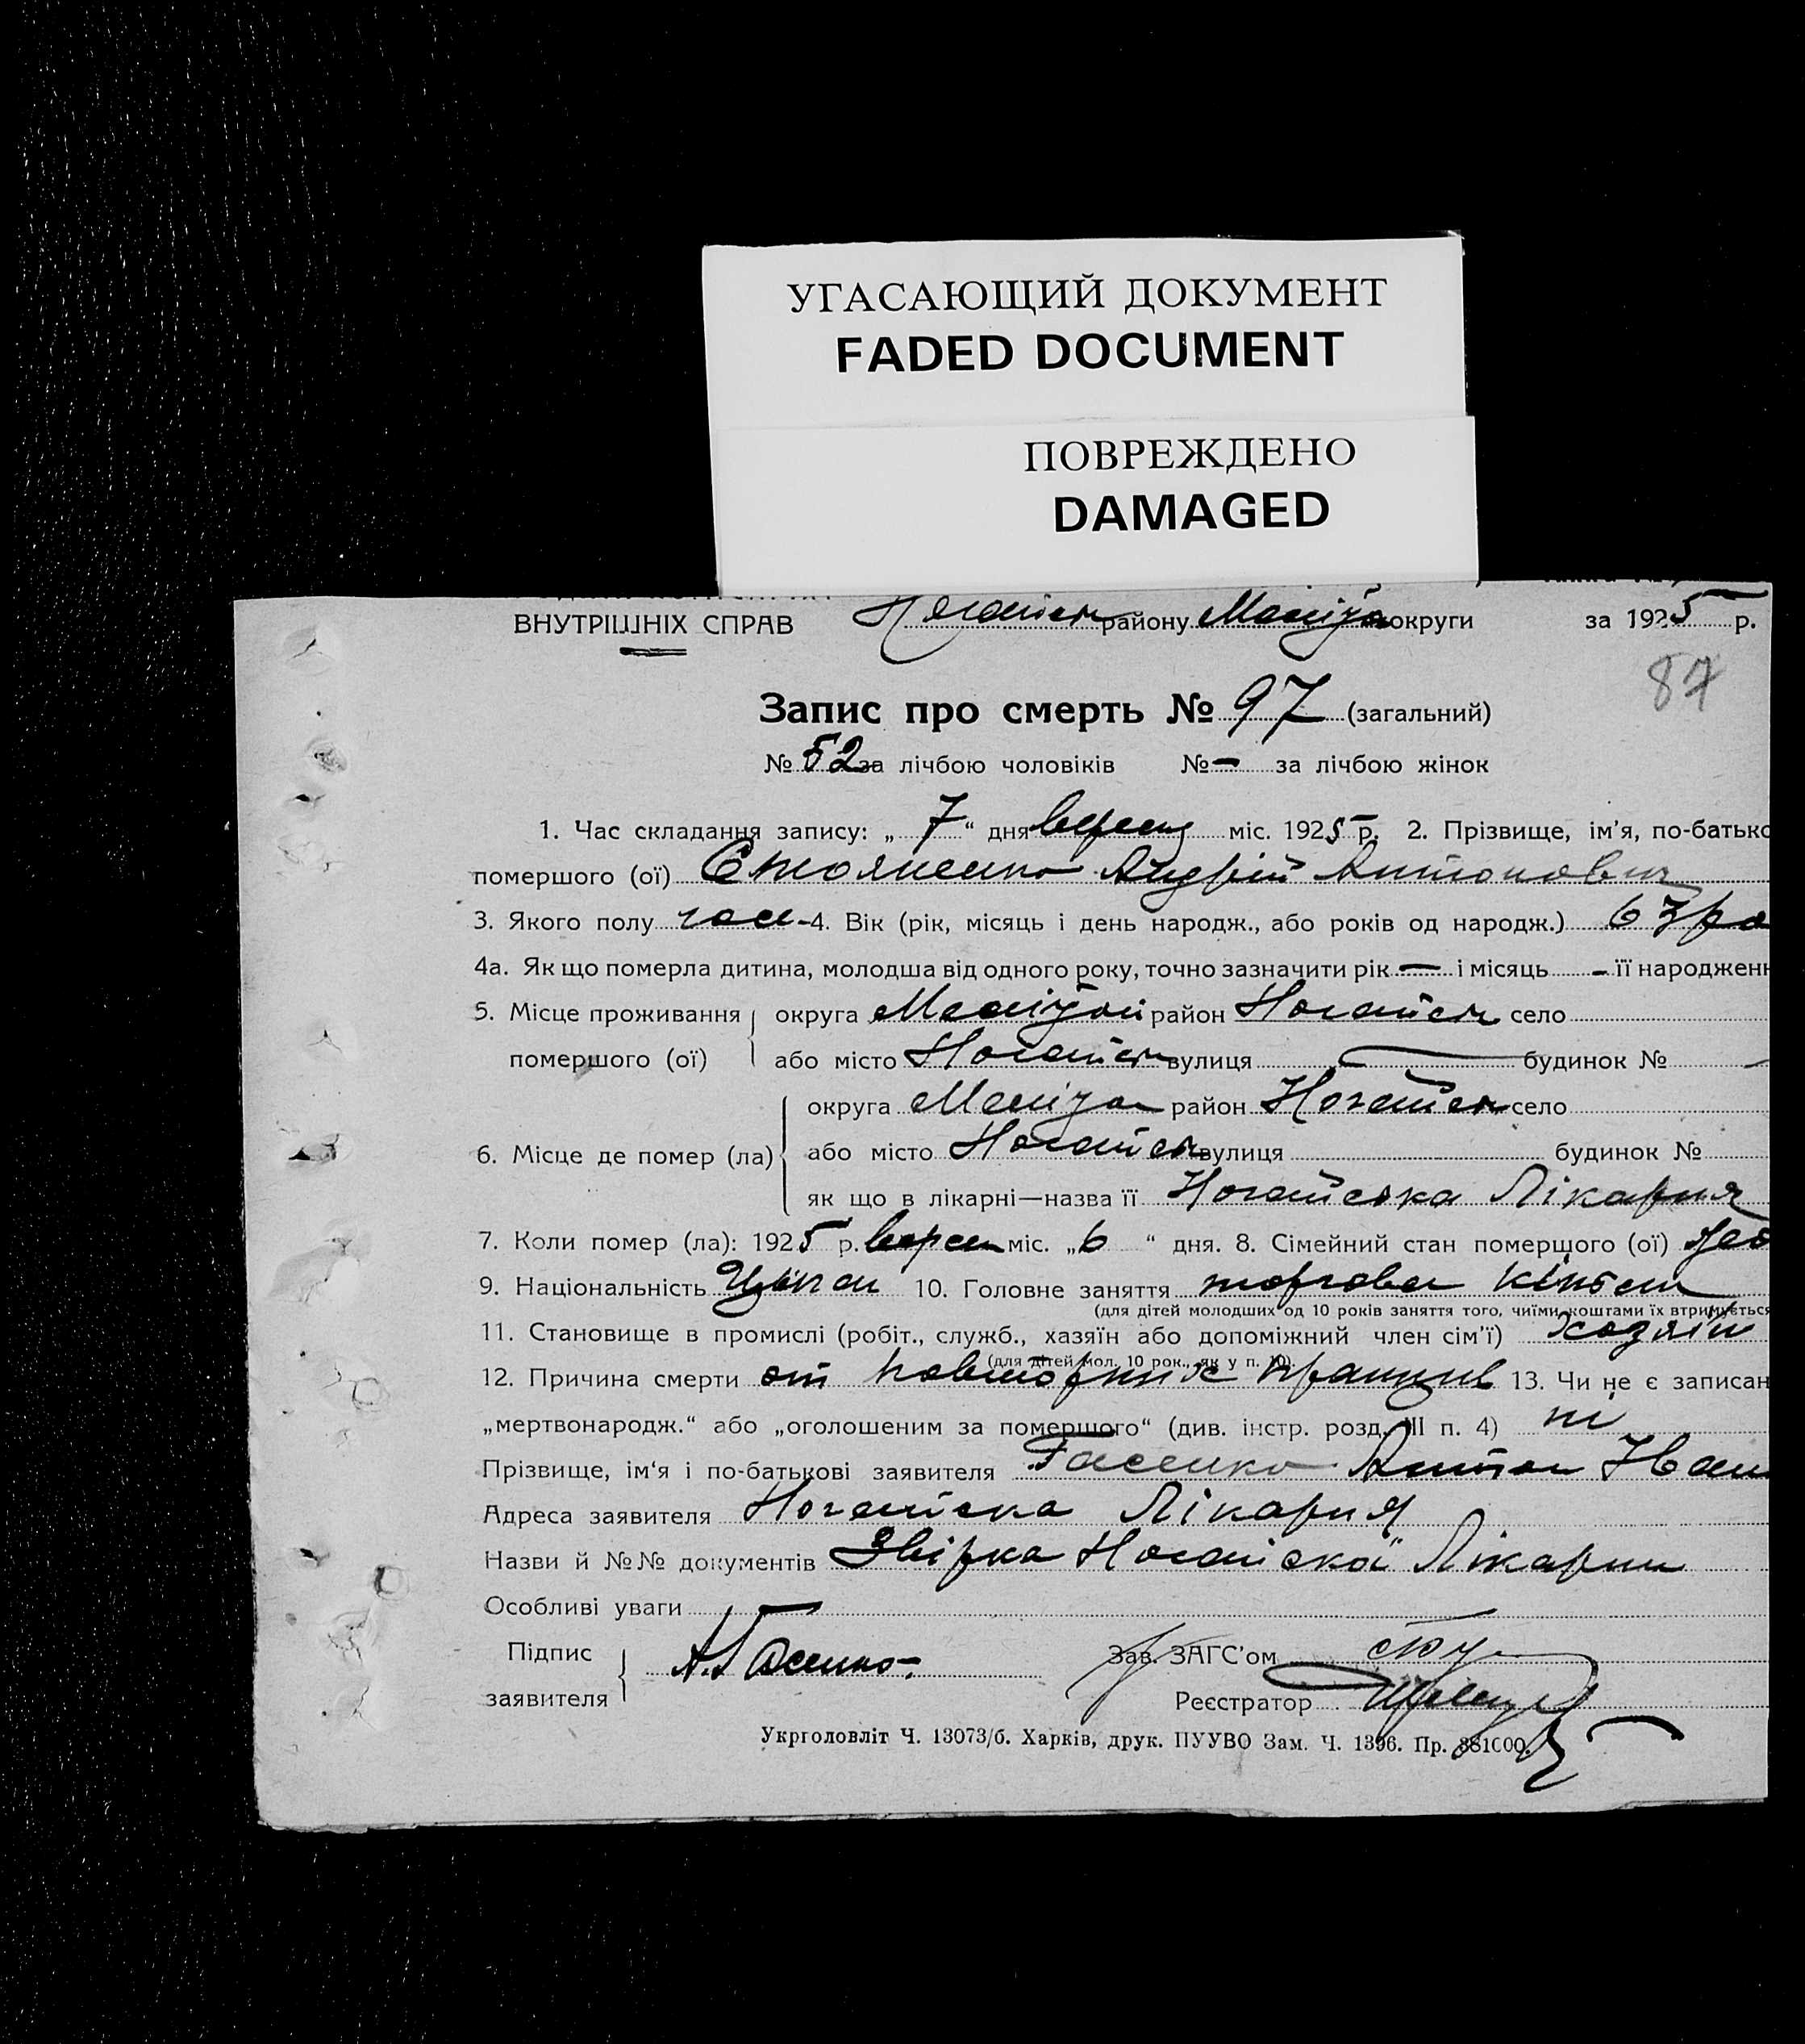 УГАСАЮЩИЙ ДОКУМЕНТ
FADED DOCUMENT
ПОВРЕЖДЕНО
DAMAGED
ВНУТРІШНІХ СПРАВ Ногайськ району Меліто округи за 1925 р.
87
Запис про смерть № 97 (загальний)
№ 52 за лічбою чоловіків № — за лічбою жінок
1. Час складання запису: „ 7 “ дня вересня міс. 1925 р. 2. Прізвище, ім’я, по-батько
помершого (ої) Стояненко Андрій Антонович
3. Якого полу чол 4. Вік (рік, місяць і день народж., або років од народж.) 63 ро
4а. Як що померла дитина, молодша від одного року, точно зазначити рік — і місяць - її народженн
5. Місце проживання округа Меліт район Ногайськ село
помершого (ої) або місто Ногайськ вулиця — будинок № —
округа Меліт район Ногайськ село
6. Місце де помер (ла) або місто Ногайськ вулиця будинок №
як що в лікарні—назва її Ногайська Лікарня
7. Коли помер (ла): 1925 р. верес міс. „ 6 “ дня. 8. Сімейний стан помершого (ої)
9. Національність Циган 10. Головне заняття торговец
(для дітей молодших од 10 років заняття того, чиїми коштами їх втримується
11. Становище в промислі (робіт., служб., хазяїн або допоміжний член сім’ї) хозяїн
(для дітей мол. 10 рок., як у п. 10).
12. Причина смерти от 13. Чи не є записан
„мертвонародж.“ або „оголошеним за помершого“ (див. інстр. розд. III п. 4) ні
Прізвище, ім‘я і по-батькові заявителя Гасенко Антон Іван
Адреса заявителя Ногайска Лікарня
Назви й №№ документів Звірка Ногайскої Лікарни
Особливі уваги
Підпис заявителя А. Гасенко. Зав. ЗАГС’ом
Реєстратор
Укрголовліт Ч. 13073/б. Харків, друк. ПУУВО Зам. Ч. 1396. Пр. 881000.